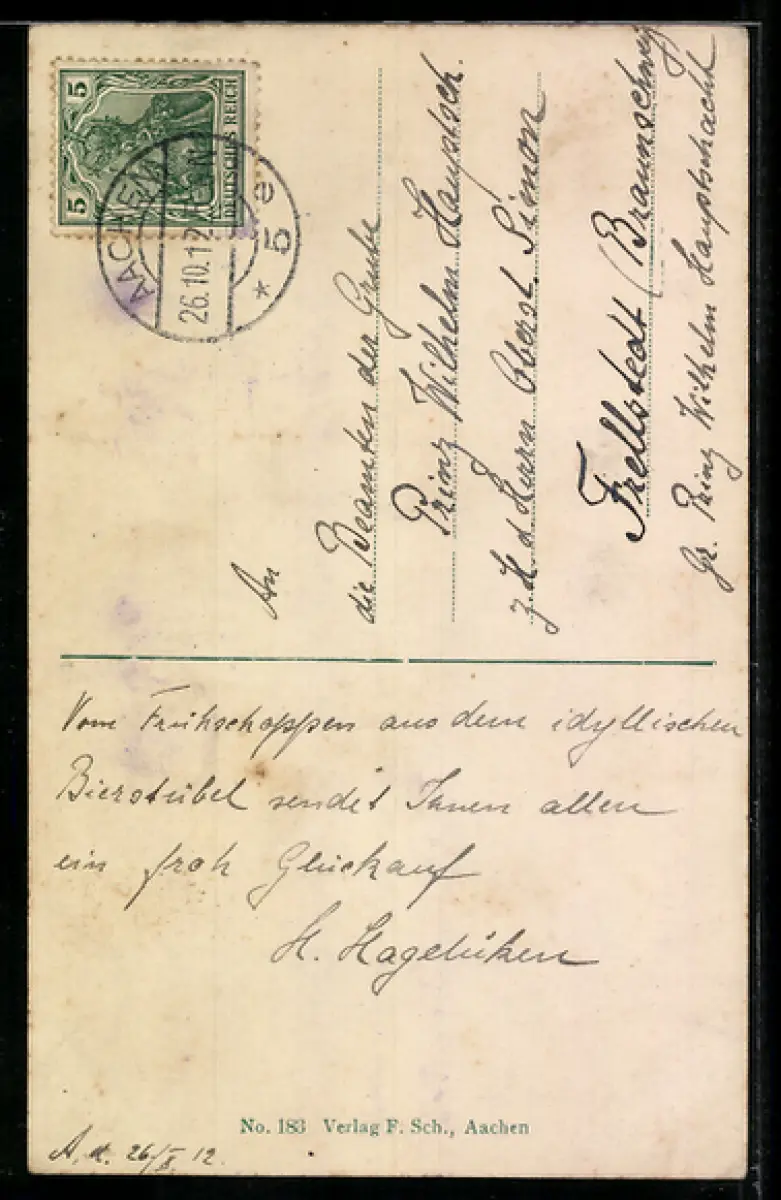 5 5
DEUTSCHES REICH
AACHEN
26.10.12
* 5 e
An
die Beamten der Grube
Prinz Wilhelm Hauptsch.
z. H d Herrn Oberst. Simon
Frellstedt (Braunschweig
Gr. Prinz Wilhelm Hauptschacht
Vom Frühschoppen aus dem idyllischen
Bierstübel sendet Ihnen allen
ein froh Glückauf
H. Hagelüken
No. 183 Verlag F. Sch., Aachen
A. d. 26/X. 12.